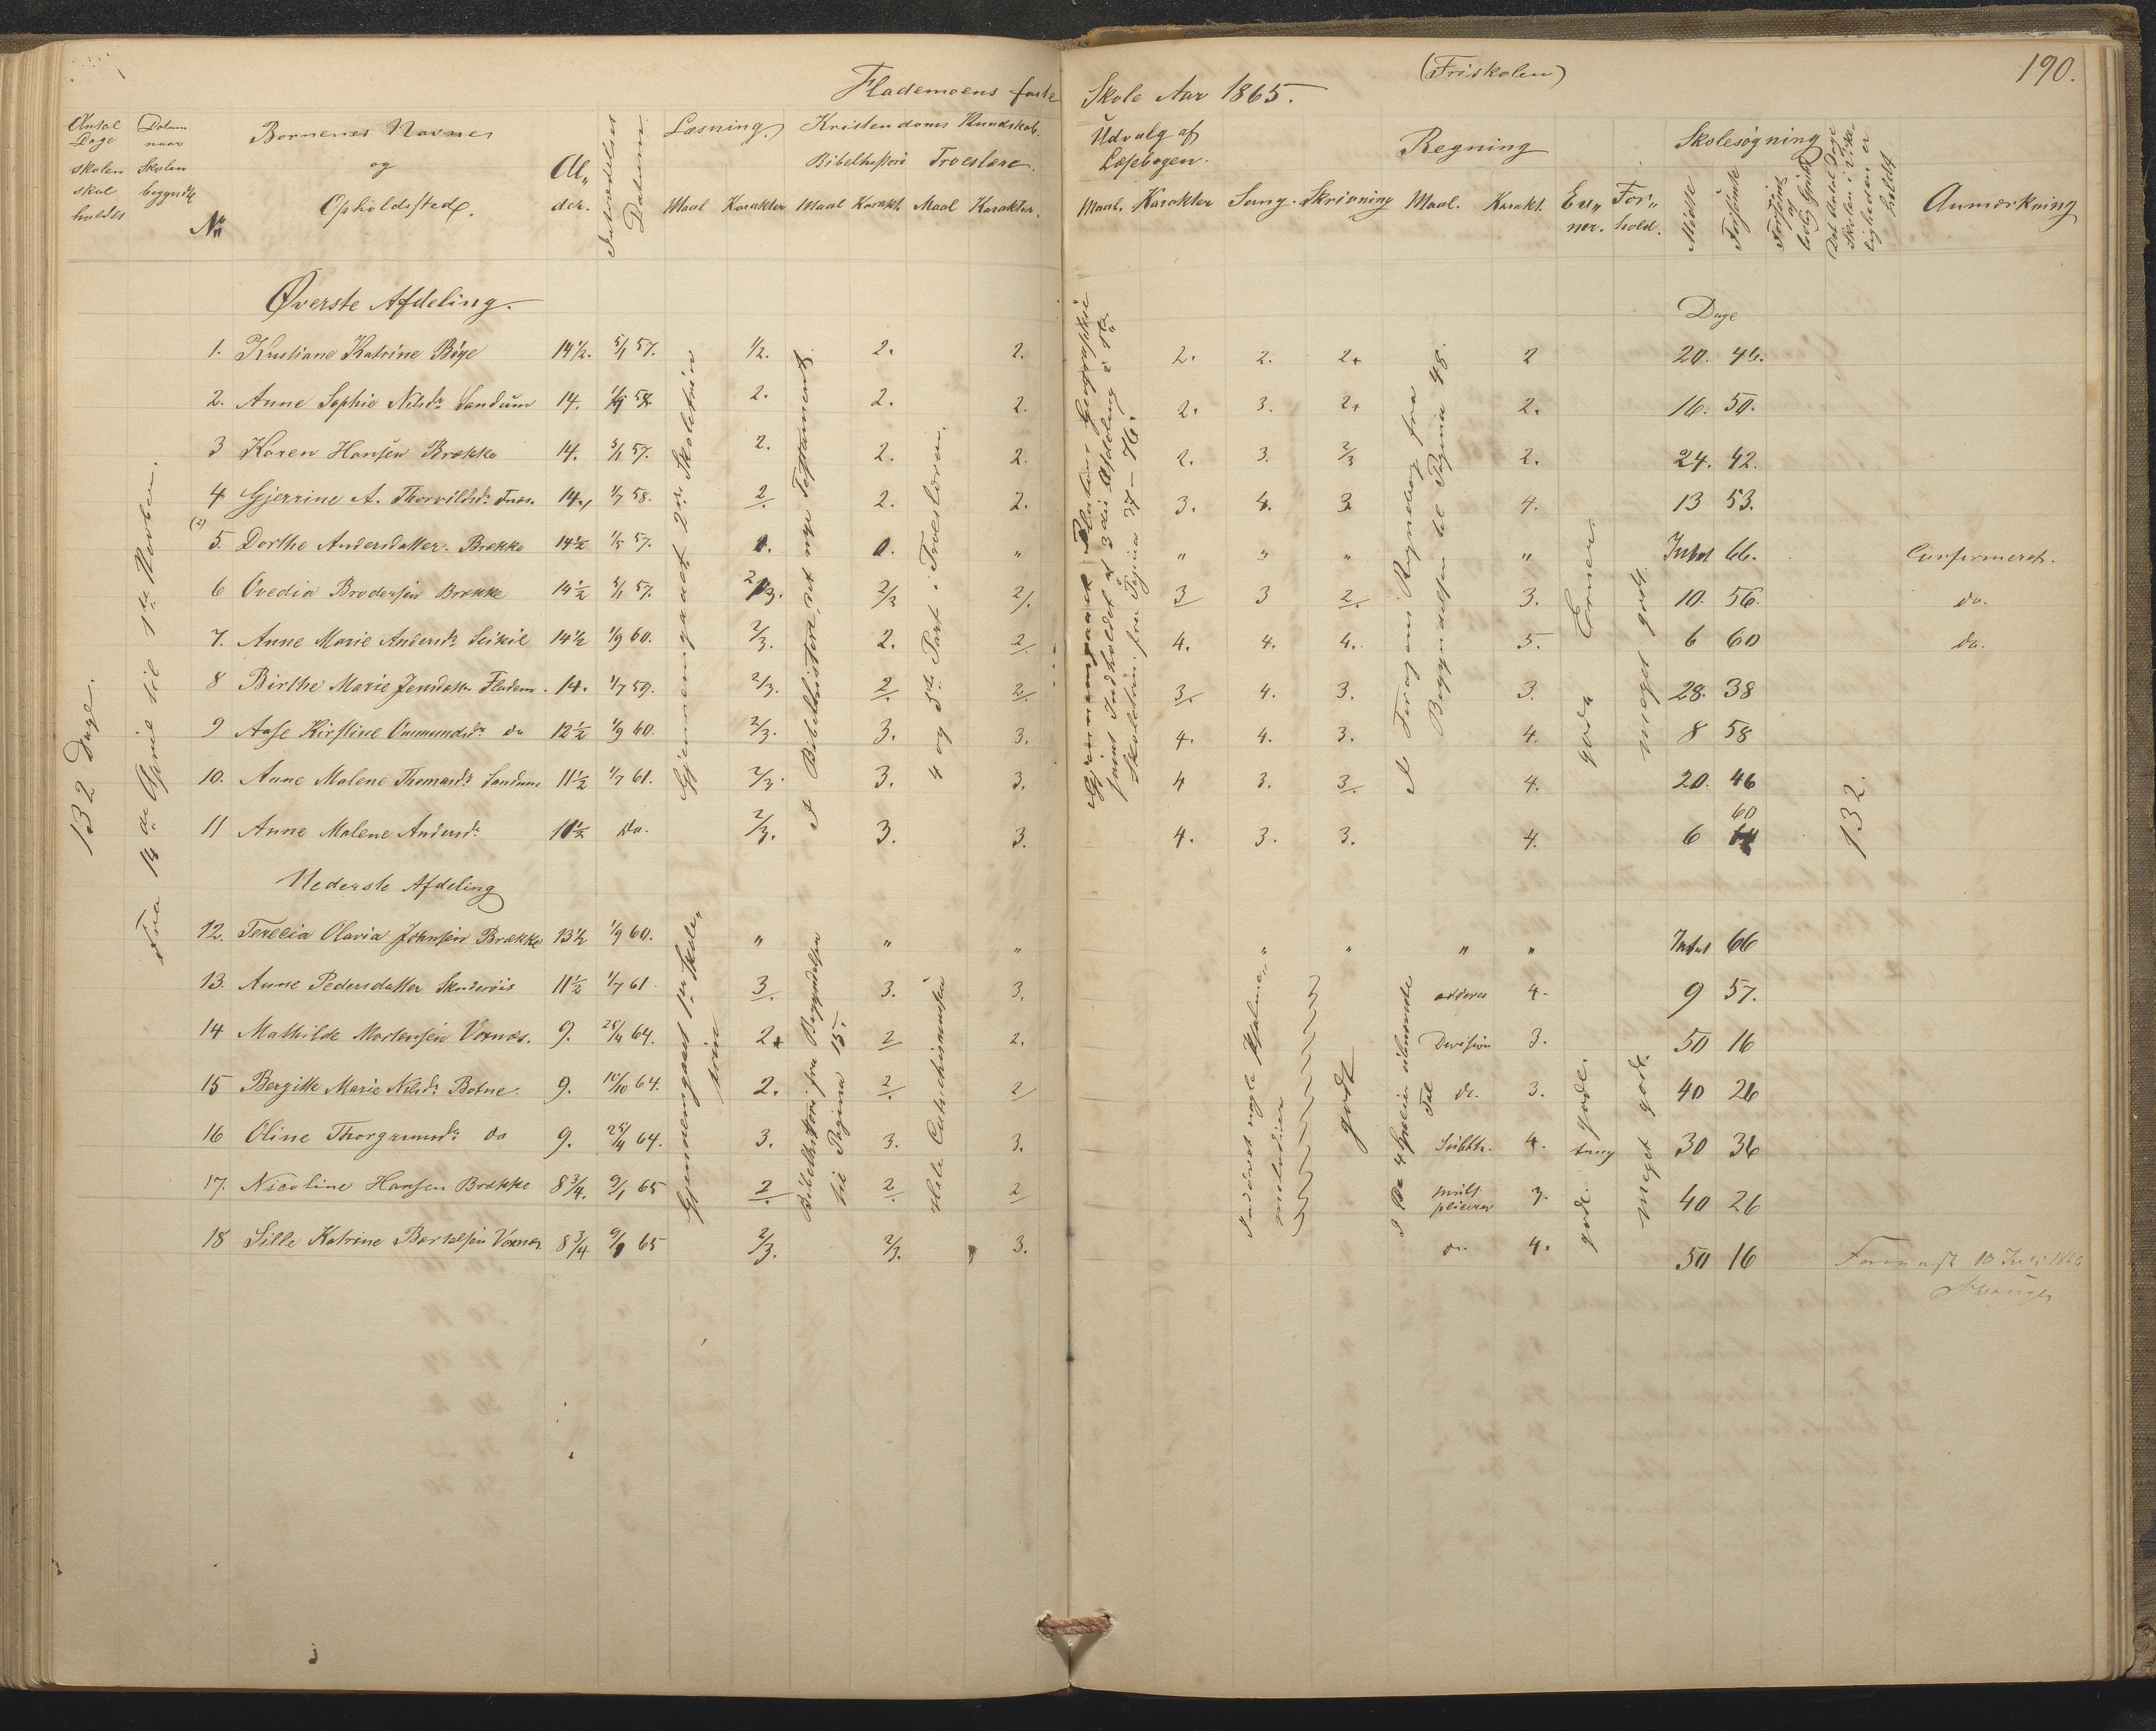 190.
Flademoens faste Skole Aar 1865. (Friskolen)
Antal Dage skolen skal holdes
Datum naar Skolen begyndte
No
Børnenes Navne og Opholdssted.
Alder.
Indtrædelses Datum
Læsning.
Maal Karakter
Kristendoms Kundskab.
Bibelhistorie Troeslære.
Maal Karakt. Maal Karakter.
Udvalg af Læsebogen.
Maal. Karakter Sang. Skrivning
Regning
Maal. Karakt.
Evner. Forhold.
Skolesøgning
Mødte Forsømte
Det Antal Dage Skolen i Virkeligheden er holdt
Anmærkning
132 Dage.
Fra 18de April til 1ste Novber.
Øverste Afdeling.
Dage
Gjennemgaaet 2det Skoletrin
I Bibelhistorie, det nye Testament
4 og 5te Part i Troeslæren.
Skoletrin fra Pagina 27–76.
I Forogni Regnebog fra Begyndelsen til Pagina 48.
gode Evner
meget godt.
132.
1. Kristiane Katrine Bøye 14½. 5/1 57. ½. 2. 2. 2. 2. 2+ 2 20. 46.
2. Anne Sophie Nilsdr Sandum 14. 58. 2. 2. 2. 2. 3. 2+ 2. 16. 50.
3 Karen Hansen Brække 14. 5/1 57. 2. 2. 2. 2. 3. 2/3 2. 24. 42.
4 Gjerrine A. Thorvildsdr 14. 1/7 58. 2 2. 2. 3. 4. 3. 4. 13 53.
(2)
5. Dorthe Andersdatter Brække 14½ 57. 0. 0. " " " " " Intet 66. Confirmeret.
6 Ovedia Brodersen Brække 14½ 5/1 57. 2/3. 2/3 2/. 3 3 2. 3. 10. 56. do.
7. Anne Marie Andersdr 14½ 1/9 60. 2/3. 2. 2 4. 4. 4. 5. 6 60 do.
8 Birthe Marie Jensdatter Fladem. 14. 1/7 59. 2/3. 2 2 3. 4. 3. 3. 28. 38
9 Aase Kirstine Ommundsdr do 12½ 1/9 60. 2/3. 3. 3. 4. 4. 3. 4. 8 58
10. Anne Malene Thomasdr Sandum 11½ 1/7 61. 2/3. 3. 3. 4 3. 3. 4. 20. 46
11 Anne Malene Andersdr 10½ do. 2/3. 3. 3. 4. 3. 3. 4. 6 60
Nederste Afdeling
Gjennemgaaet 1ste Skoletrin
Bibelhistorie fra Begyndelsen til Pagina 15.
Hele Catechismusen
Indøvet nogle Psalmemelodier
godt
gode.
meget godt.
12. Terecia Olavia Johnsen Brække 13½ 1/9 60. " " " " " " " Intet 66
13. Anne Pedersdatter 11½ 1/7 61. 3. 3. 3. adderer 4. 9 57.
14 Mathilde Mortensen Voxnæs. 9. 25/4 64. 2+ 2 2. Division 3. 50 16
15 Bergitte Marie Nilsdr Botne. 9. 10/10 64. 2. 2. 2 do. 3. 40 26
16 Oline Thorgrimsdr do 9. 25/4 64. 3. 3. 3. Subtr. 4. tung 30 36
17. Nicoline Hansen Brække 8¾. 9/1 65 2. 2. 2 multiplicerer 3. gode. 40 26
18 Sille Katrine Bertelsen Voxnæs 8¾ 9/1 65 2/3. 2/3. 3. do. 4. 50 16